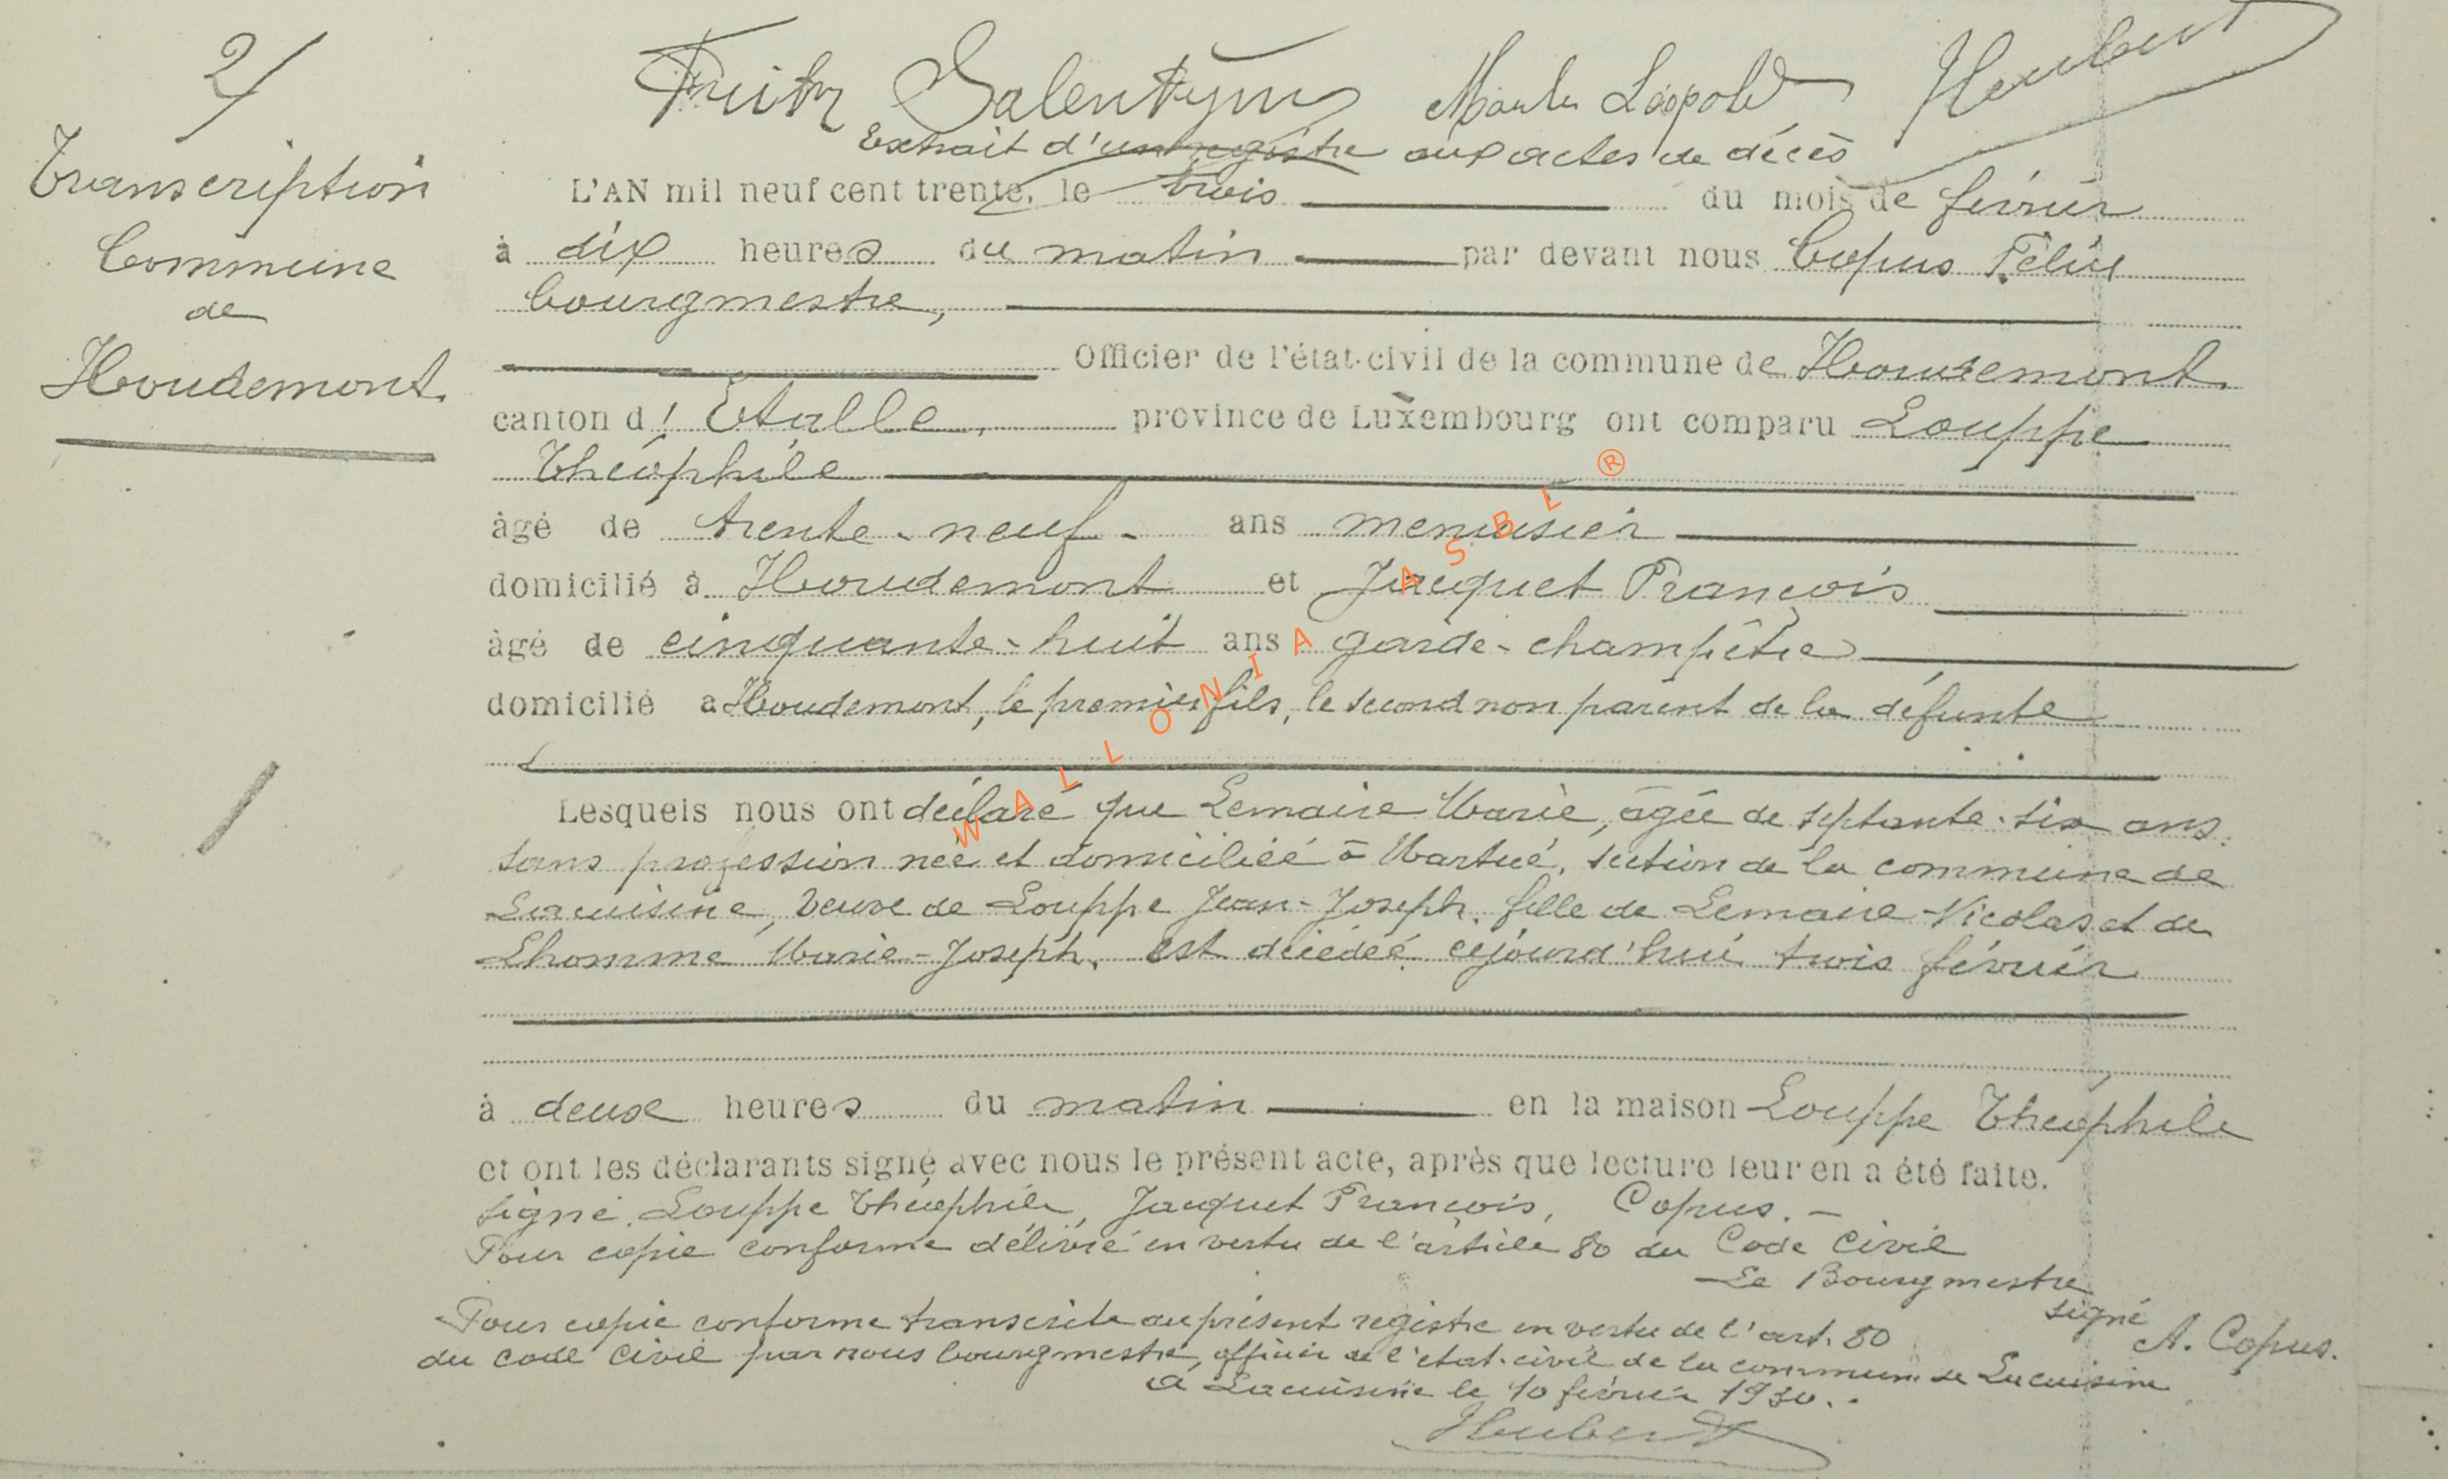 2/
Transcription
Commune
de
Houdemont.
Fritz Salentyny Léopold Hubert
Extrait d'un registre aux actes de décès
L'AN mil neuf cent trente, le trois du mois de février
à dix heures du matin par devant nous Copus Félix
bourgmestre,
Officier de l'état-civil de la commune de Houdemont.
canton d' Etalle, province de Luxembourg ont comparu Louppe
Théophile
âgé de trente-neuf ans menuisier
domicilié à Houdemont et Jacquet François
âgé de cinquante-huit ans garde-champêtre
domicilié a Houdemont, le premier fils, le second non parent de la défunte
Lesquels nous ont déclaré que Lemaire Marie, âgée de septante-six ans.
sans profession née et domiciliée à Martué, section de la commune de
Lacuisine, veuve de Louppe Jean-Joseph, fille de Lemaire Nicolas et de
Lhomme Marie-Joseph, est décédée cejourd'hui trois février
à deux heures du matin en la maison Louppe Théophile
et ont les déclarants signé avec nous le présent acte, après que lecture leur en a été faite.
signé. Louppe Théophile, Jacquet François, Copus. -
Pour copie conforme délivré en vertu de l'article 80 du Code Civil
Le Bourgmestre
signé A. Copus.
Pour copie conforme transcrite au présent registre en vertu de l'art. 80
du code civil par nous bourgmestre, officier de l'état-civil de la commune de Lacuisine
à Lacuisine le 10 février 1930.
Hubert
WALLONIA ASBL ®